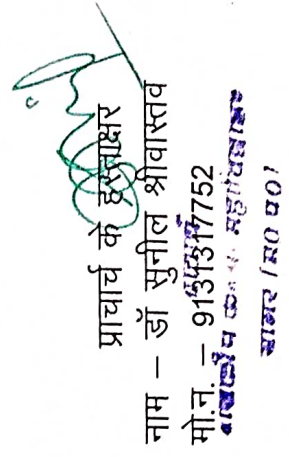 प्राचार्य के हस्ताक्षर
नाम – डॉ सुनील श्रीवास्तव
मो.न. – 9131317752
प्राचार्य
शासकीय कला महाविद्यालय
सागर (म0 प्र0)